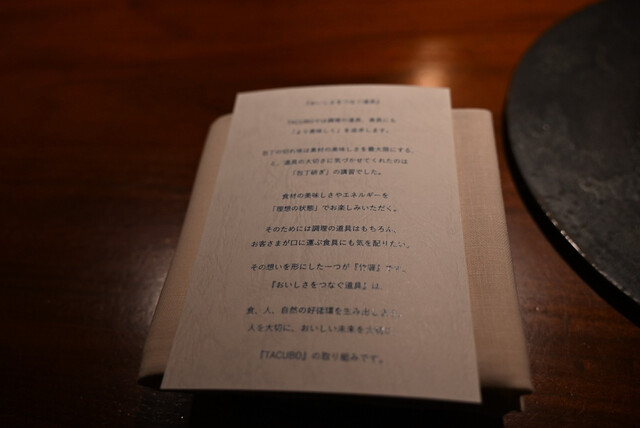 『おいしさをつなぐ道具』
TACUBOでは調理の道具、食具にも
「より美味しく」を追求します。
包丁の切れ味は食材の美味しさを最大限にする、
と、道具の大切さに気づかせてくれたのは
「包丁研ぎ」の講習でした。
食材の美味しさやエネルギーを
「理想の状態」でお楽しみいただく。
そのためには調理の道具はもちろん、
お客さまが口に運ぶ食具にも気を配りたい。
その想いを形にした一つが『竹箸』です。
『おいしさをつなぐ道具』は、
食、人、自然の好循環を生み出し
人を大切に、おいしい未来を
『TACUBO』の取り組みです。